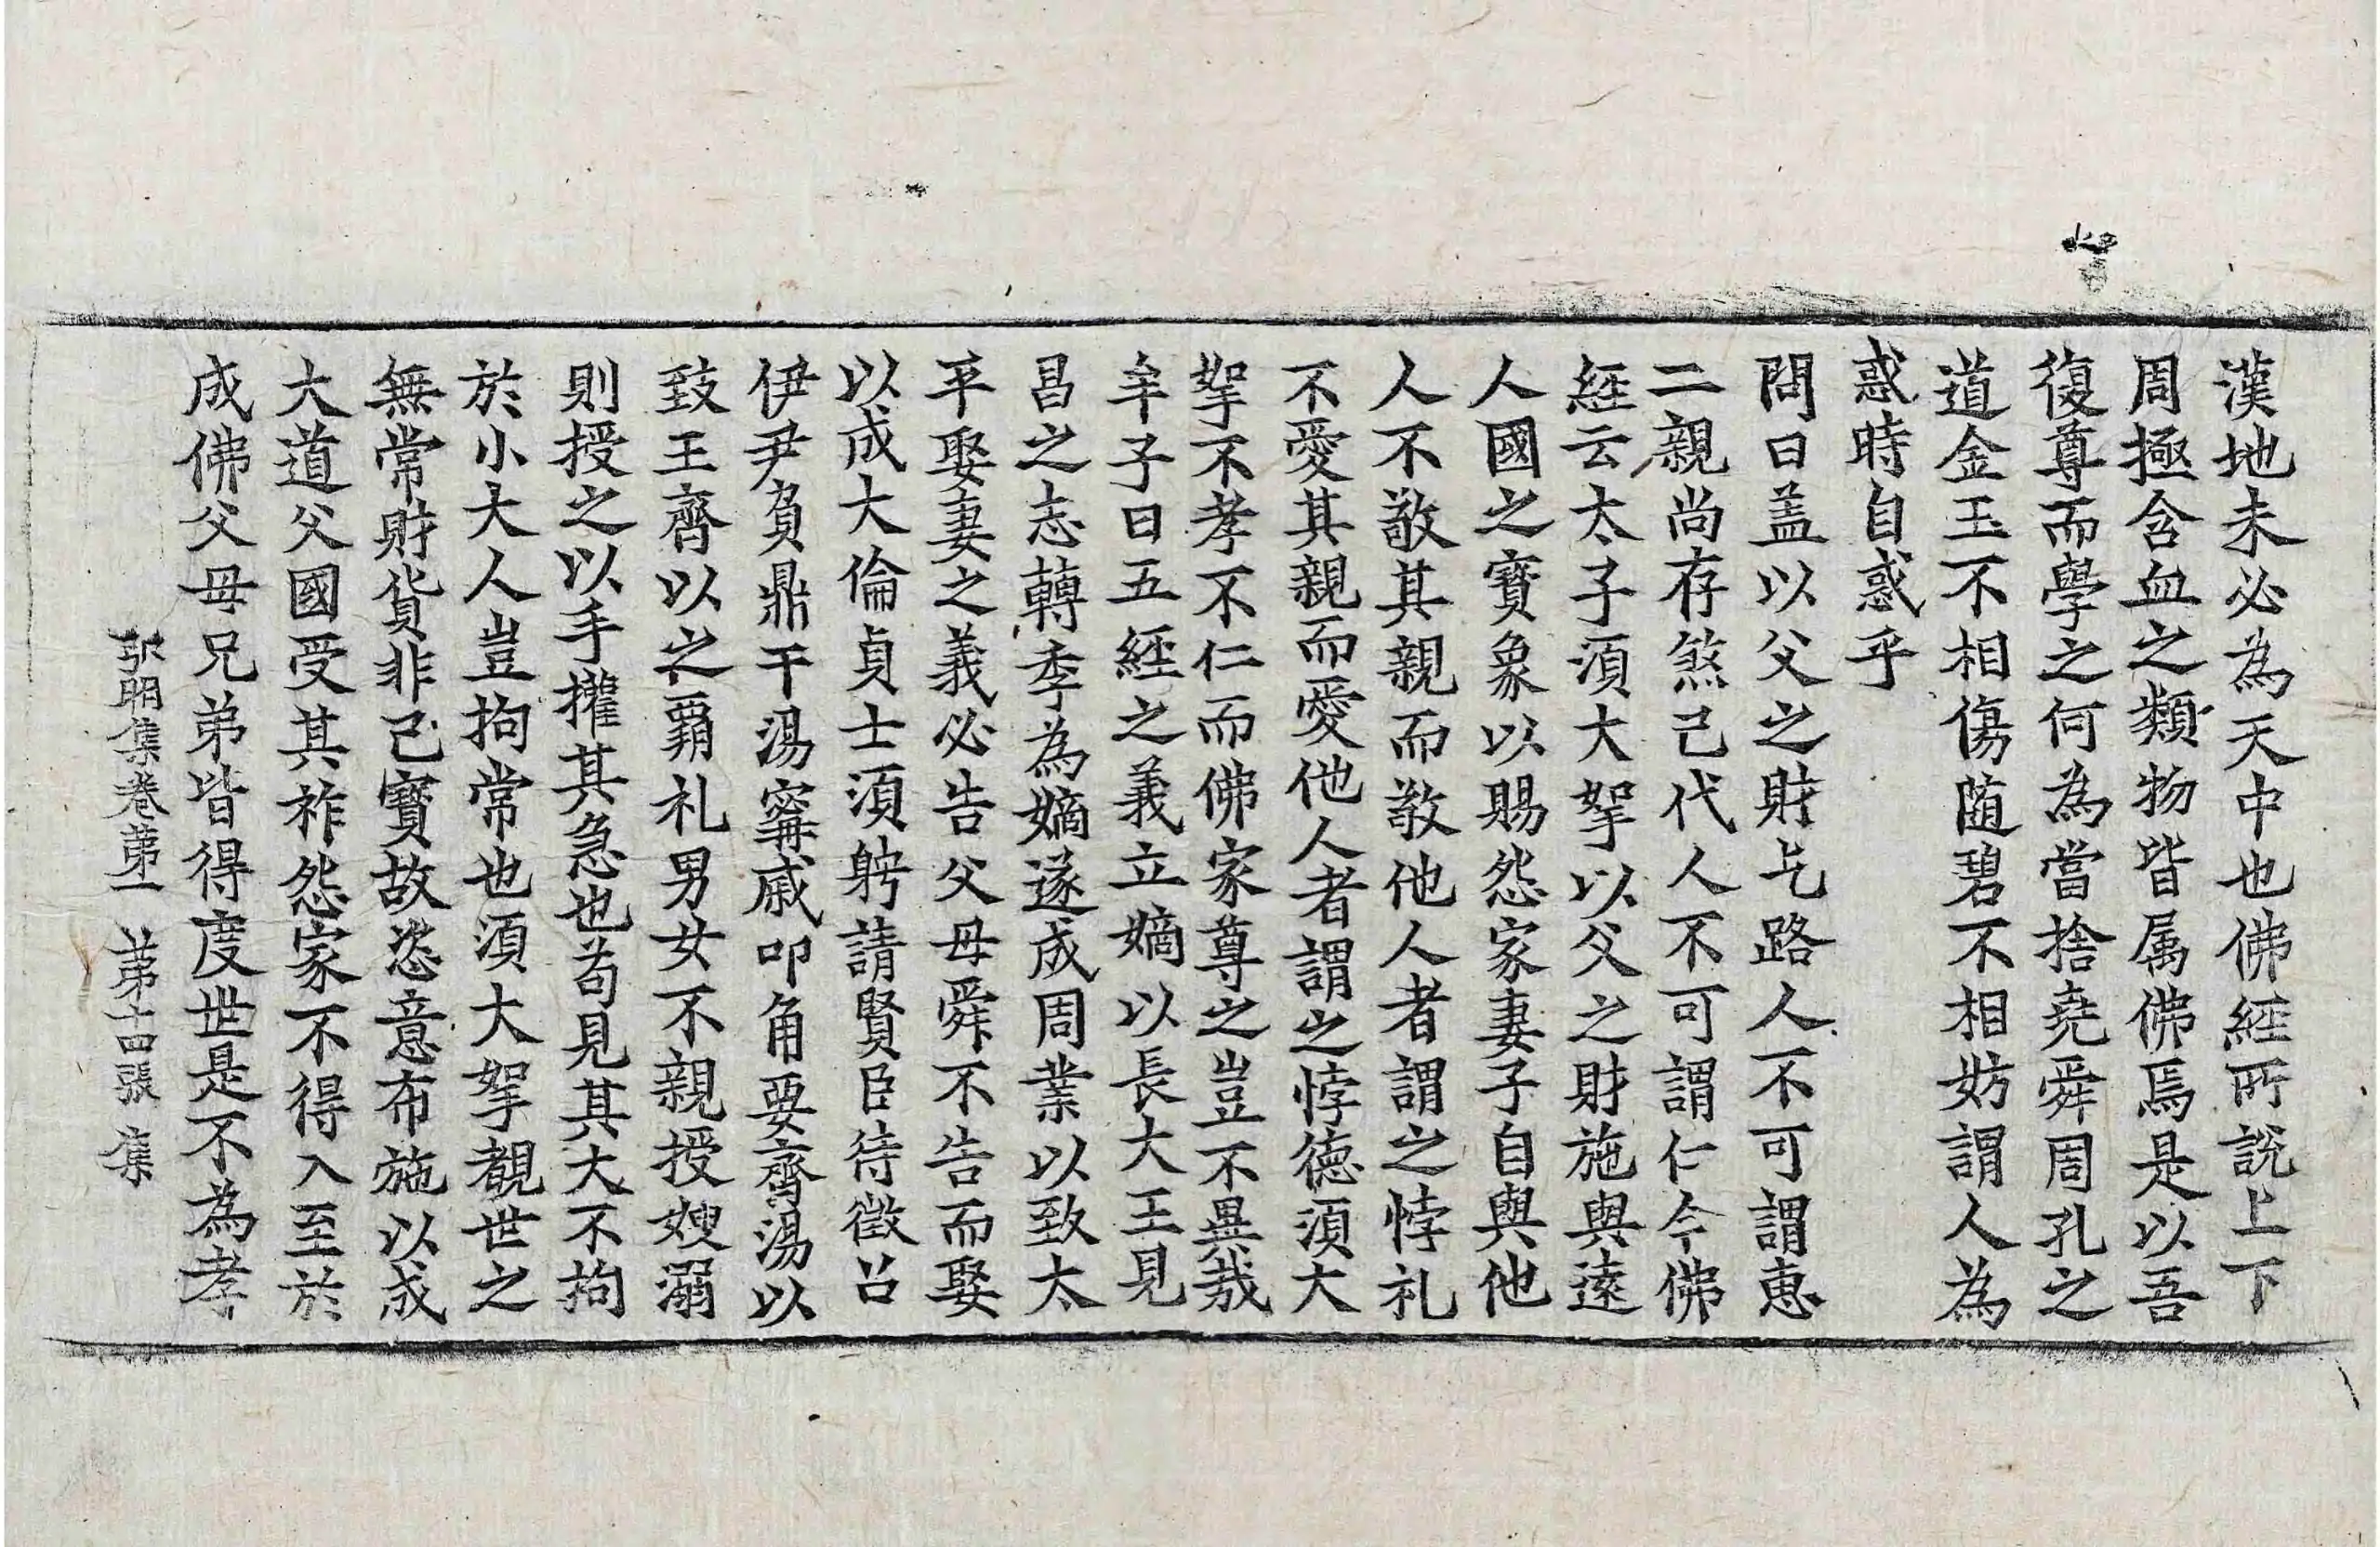 漢地未必為天中也佛經所說上下
周極含血之類物皆属佛焉是以吾
復尊而學之何為當捨堯舜周孔之
道金玉不相傷随碧不相妨謂人為
惑時自惑乎
問曰盖以父之財乞路人不可謂惠
二親尚存煞己代人不可謂仁今佛
經云太子湏大拏以父之財施與遠
人國之寳象以賜怨家妻子自與他
人不敬其親而敬他人者謂之悖礼
不愛其親而愛他人者謂之悖德湏大
拏不孝不仁而佛家尊之豈不異哉
牟子曰五經之義立嫡以長大王見
昌之志轉季為嫡遂成周業以致太
平娶妻之義必告父母舜不告而娶
以成大倫貞士湏娉請賢臣待徵召
伊尹負鼎干湯寗戚叩角要齊湯以
致王齊以之覇礼男女不親授嫂溺
則授之以手權其急也苟見其大不拘
於小大人豈拘常也湏大拏覩世之
無常財貨非己寳故恣意布施以成
大道父國受其祚怨家不得入至於
成佛父母兄弟皆得度世是不為孝
弘明集卷第一 第十四張 集